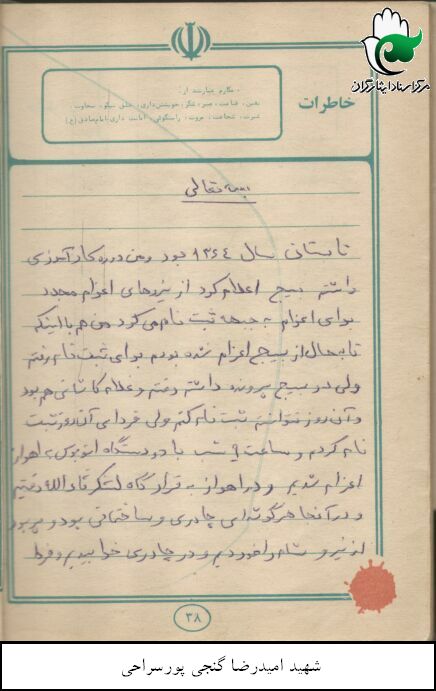 مرکز اسناد ایثارگران
خاطرات
مکارم عبارتند از:
یقین، قناعت، صبر، شکر، خویشتن‌داری، خلق نیکو، سخاوت،
غیرت، شجاعت، مروت، راستگوئی، امانت داری.امام صادق (ع)
بسمه تعالی
تابستانی سال ۱۳۶۴ بود و من دوره کارآموزی
داشتم بسیج اعلام کرد از نیروهای اعزام مجدد
برای اعزام به جبهه ثبت نام می کرد من هم با اینکه
تا به حال از بسیج اعزام نشده بودم برای ثبت نام رفتم
ولی در بسیج پرونده داشتم رفتم و غلام کاشانی هم بود
و آن روز نتوانستم ثبت نام کنم ولی فردای آن روز ثبت
نام کردم و ساعت ۹ شب با دو دستگاه اتوبوس به اهواز
اعزام شدیم و در اهواز به قرارگاه لشکر ثاراالله رفتیم
و در آنجا هر گوشه ای چادری و ساختمانی بود و پر بود
از نیرو شام را خوردیم و در چادری خوابیدیم و فردا
۳۸
شهید امیدرضا گنجی پورسراحی